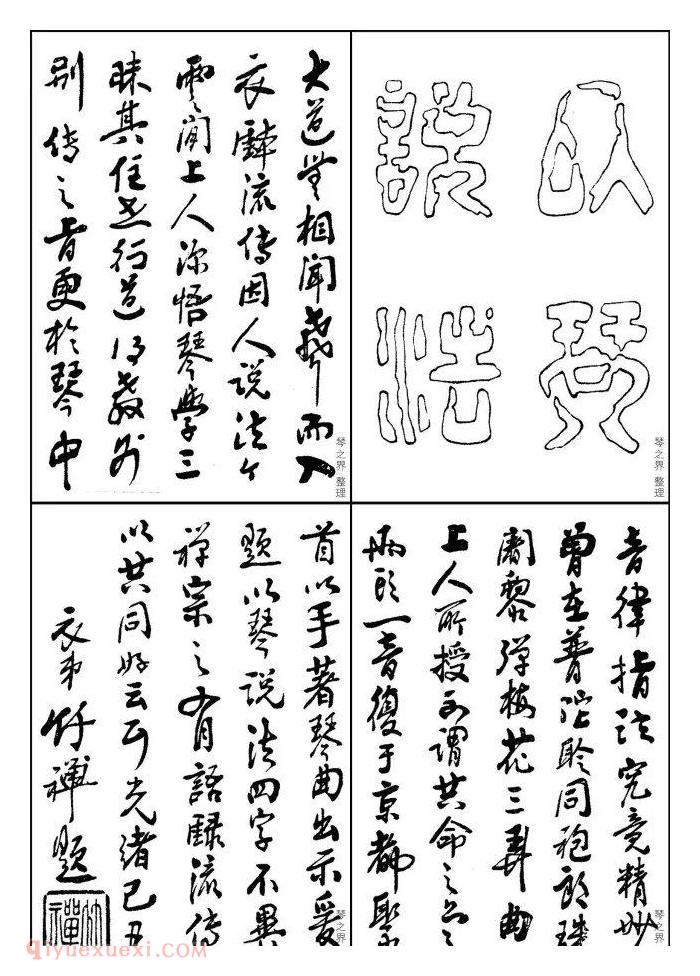 以琴
說法
大道無相聞而入
衣鉢流傳因人說法
雲閒上人深悟琴學三
昧其住世行道得教外
別傳之旨更於琴中
音律指法究竟精妙
曾在普陀聆同袍朗珠
闍黎彈梅花三弄曲
上人所授可謂共命之
兩頭一音復于京都聚
首以手著琴曲出示爰
題以琴說法四字不異
禪宗之有語錄流傳
以共同好云尔光緒己丑
衣弟竹禪題
竹禪
琴之界 整理
琴之界 整理
琴之界
琴之界
qiyuexuexi.com